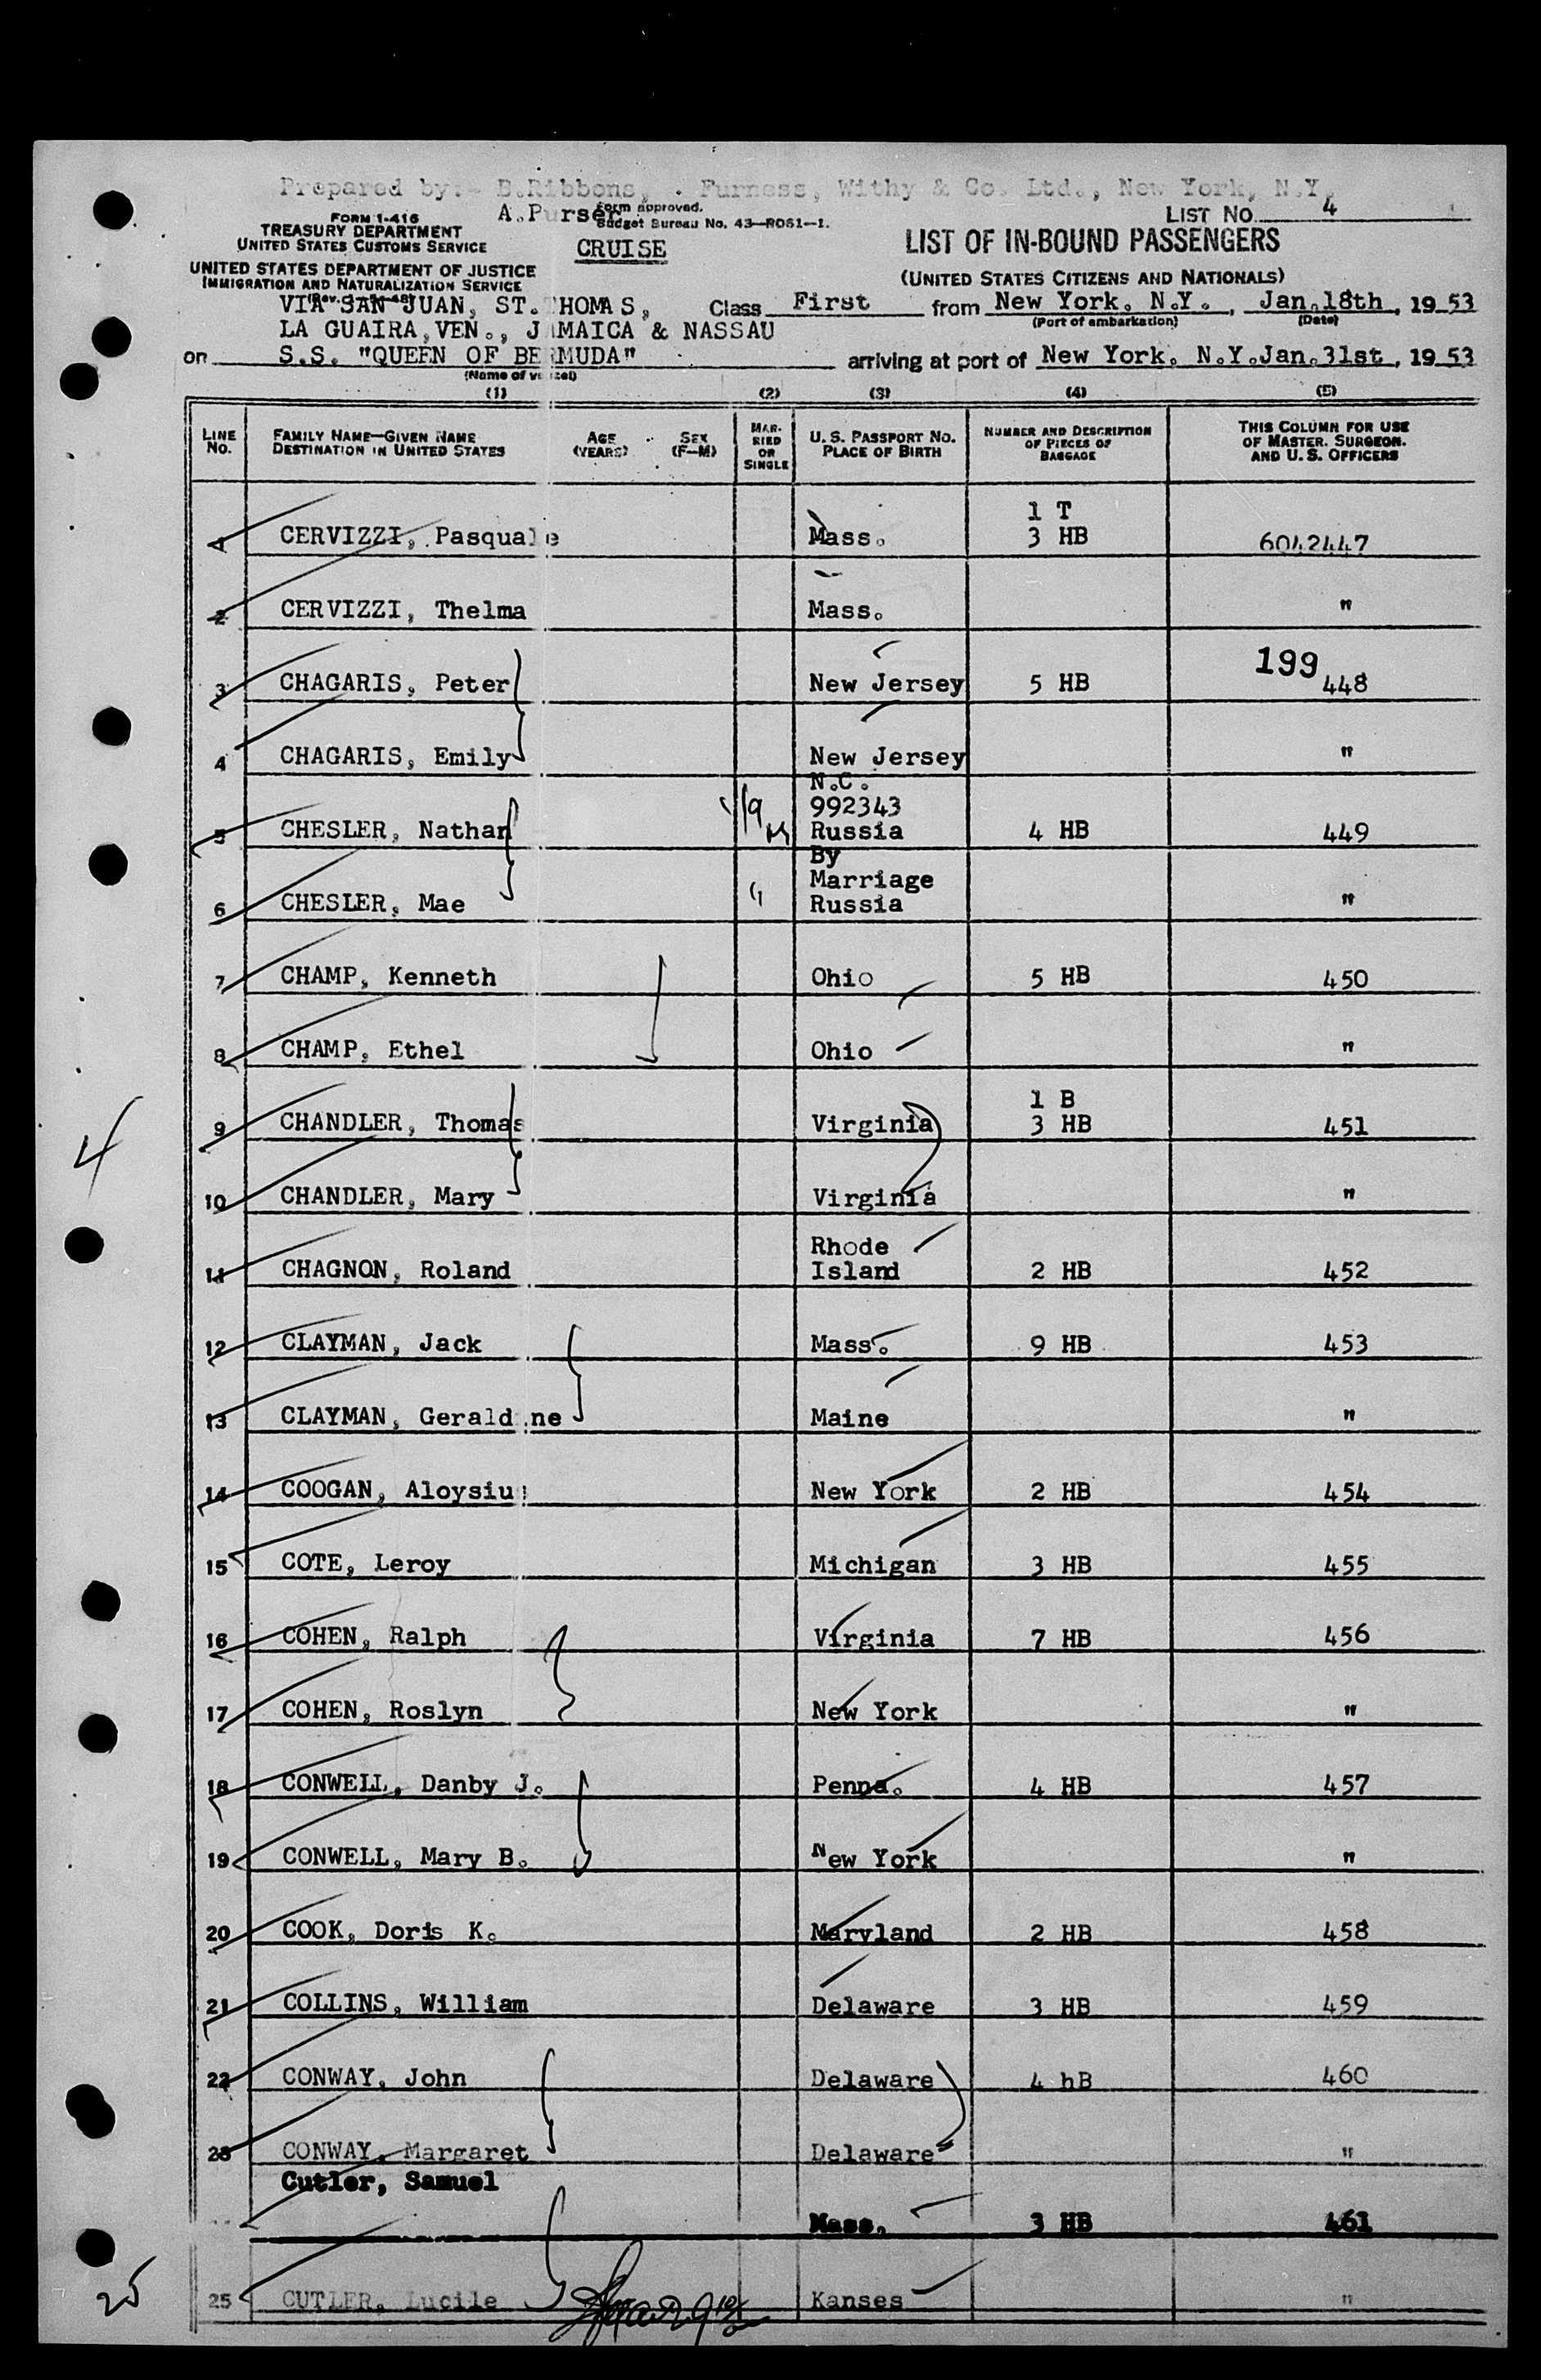 Prepared by:- B.Ribbons, . Furness, Withy & Co. Ltd., New York, N.Y.
A.Purser.
Form approved.
Budget Bureau No. 43-R061-1.
LIST NO. 4
FORM I-416
TREASURY DEPARTMENT
UNITED STATES CUSTOMS SERVICE
CRUISE
LIST OF IN-BOUND PASSENGERS
UNITED STATES DEPARTMENT OF JUSTICE
IMMIGRATION AND NATURALIZATION SERVICE
(UNITED STATES CITIZENS AND NATIONALS)
VIA SAN JUAN, ST. THOMAS, Class First from New York. N.Y., Jan.18th, 1953
(Port of embarkation) (Date)
LA GUAIRA,VEN., JAMAICA & NASSAU
on S.S. "QUEEN OF BERMUDA" arriving at port of New York. N.Y.Jan.31st, 1953
(Name of vessel)
(1) (2) (3) (4) (5)
LINE NO. FAMILY NAME—GIVEN NAME DESTINATION IN UNITED STATES AGE (YEARS) SEX (F-M) MARRIED OR SINGLE U. S. PASSPORT NO. PLACE OF BIRTH NUMBER AND DESCRIPTION OF PIECES OF BAGGAGE THIS COLUMN FOR USE OF MASTER. SURGEON. AND U. S. OFFICERS
1 T
1 CERVIZZI, Pasquale Mass. 3 HB 6042447
2 CERVIZZI, Thelma Mass. "
199
3 CHAGARIS, Peter New Jersey 5 HB 448
4 CHAGARIS, Emily New Jersey "
N.C.
992343
5 CHESLER, Nathan Russia 4 HB 449
By
Marriage
6 CHESLER, Mae " Russia "
7 CHAMP, Kenneth Ohio 5 HB 450
8 CHAMP, Ethel Ohio "
1 B
9 CHANDLER, Thomas Virginia 3 HB 451
4
10 CHANDLER, Mary Virginia "
Rhode
11 CHAGNON, Roland Island 2 HB 452
12 CLAYMAN, Jack Mass. 9 HB 453
13 CLAYMAN, Gerald ne Maine "
14 COOGAN, Aloysius New York 2 HB 454
15 COTE, Leroy Michigan 3 HB 455
16 COHEN, Ralph Virginia 7 HB 456
17 COHEN, Roslyn New York "
18 CONWELL, Danby J. Penna. 4 HB 457
19 CONWELL, Mary B. New York "
20 COOK, Doris K. Maryland 2 HB 458
21 COLLINS, William Delaware 3 HB 459
22 CONWAY, John Delaware 4 hB 460
23 CONWAY, Margaret Delaware "
Cutler, Samuel
Mass. 3 HB 461
25
25 CUTLER, Lucile Kanses "